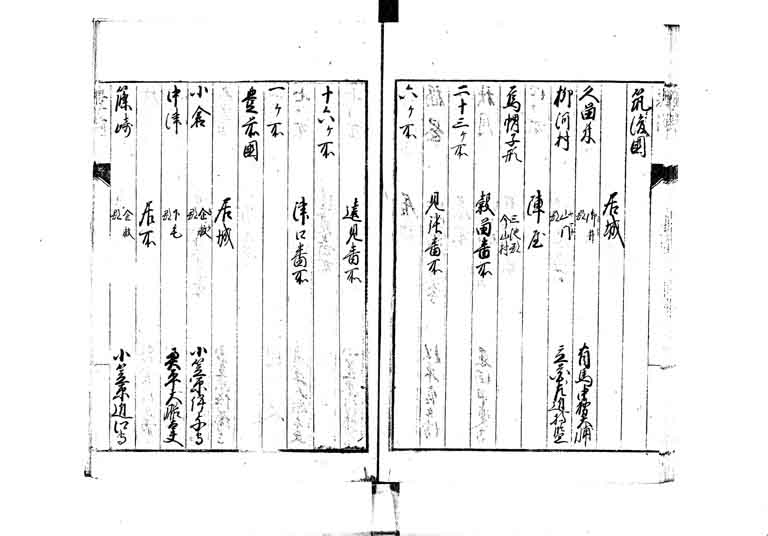 筑後國
居城
久留米 御井郡 有馬中務大輔
柳河村 山門郡 立花左近将監
陣屋
烏帽子形 三池郡 今山村
穀留番所
二十三ヶ所
見張番所
六ヶ所
遠見番所
十六ヶ所
津口番所
一ヶ所
豊前國
居城
小倉 企救郡 小笠原伊予守
中津 下毛郡 奥平大膳大夫
居所
篠崎 企救郡 小笠原近江守